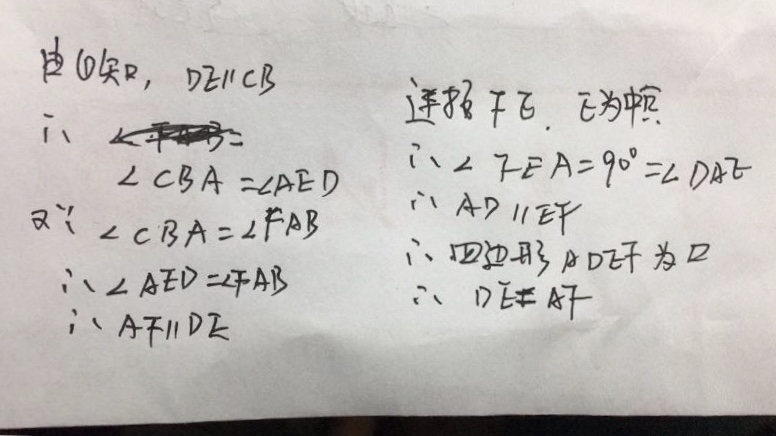 由①知, DE∥CB
∴ ∠CBA=∠AED
又∵ ∠CBA=∠FAB
∴∠AED=∠FAB
∴ AF∥DE
连接FE. E为中点
∴∠FEA=90°=∠DAE
∴ AD∥EF
∴ 四边形ADEF为▱
∴ DE=AF